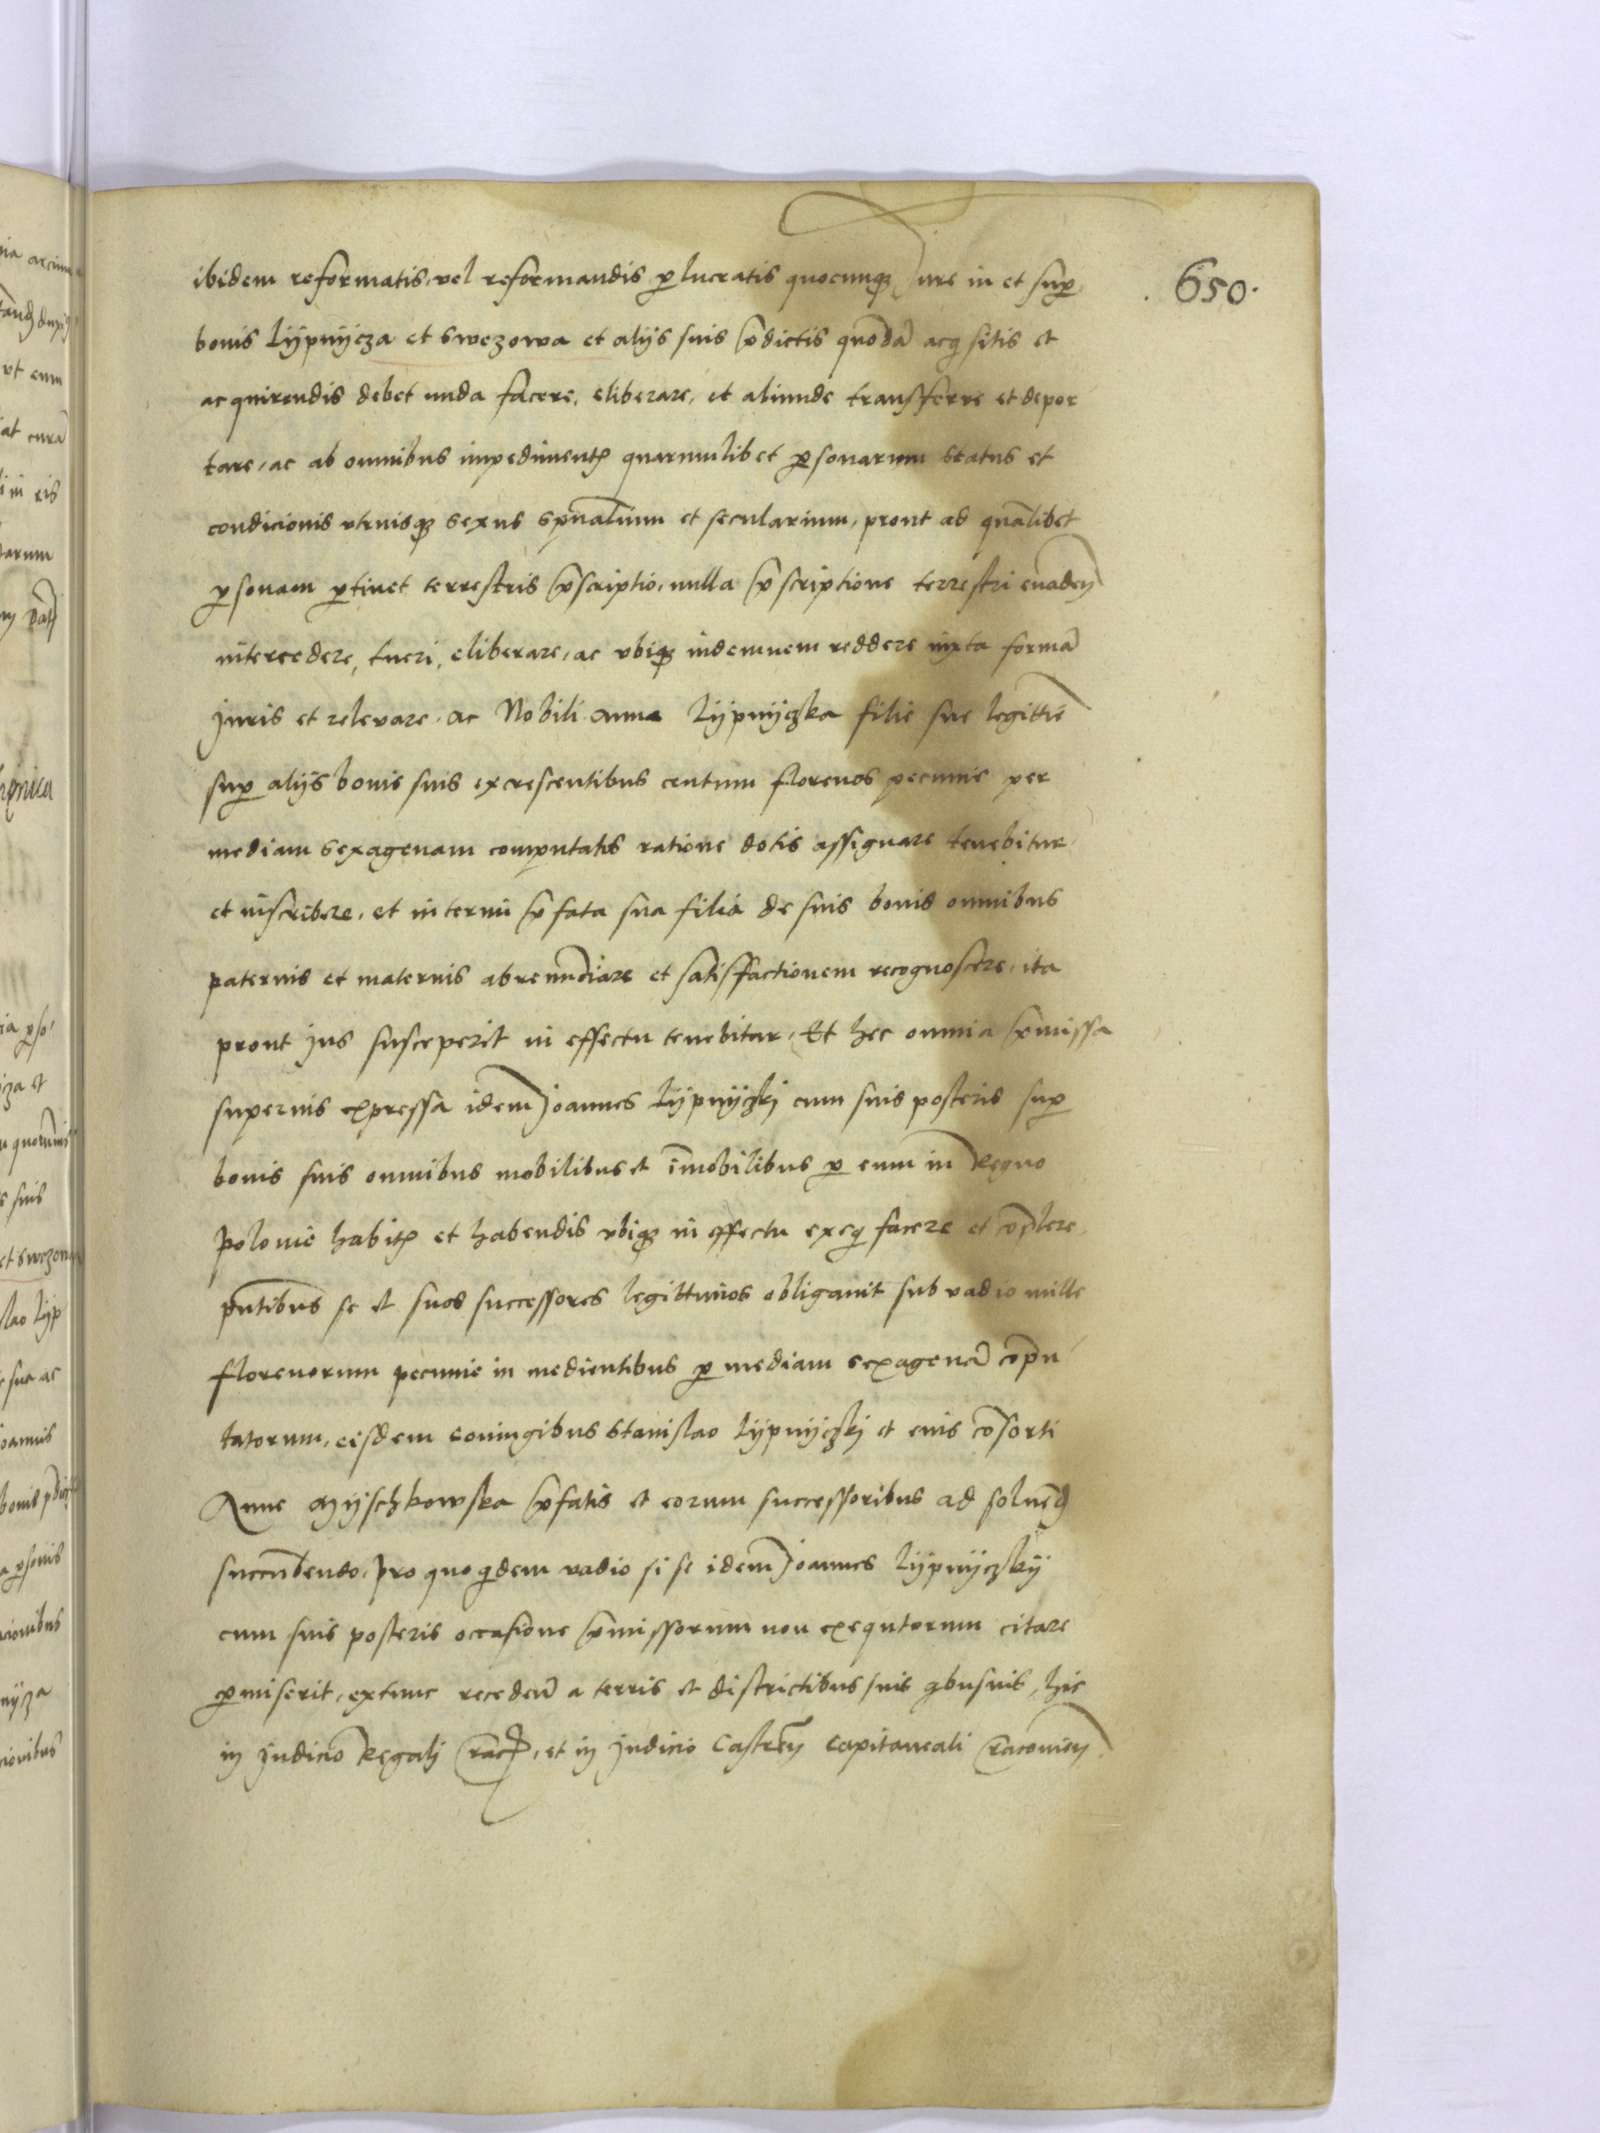 650.
ibidem reformatis, vel reformandis p lucratis quocunq iure in et sup
bonis Lÿpnÿcza et Swezowa et alijs suis pdictis quōdā acqsitis et
acquirendis debet unda facere, eliberare, et aliunde transferre et depor
tare, ac ab omnibus impediment quarumlibet psonarum status et
condicionis utriusq sexus spūalium et secularium, prout ad quālibet
psonam ptinet terrestris pscriptio, nulla pscriptione terrestri evaden
intercedere, tueri, eliberare, ac ubiq indemnem reddere iuxta formā
Juris et relevare, ac Nobili Anna Lÿpnÿczka filie sue legittīe
sup alijs bonis suis excrescentibus centum florenos pecunie per
mediam sexagenam computatis ratione dotis assignare tenebitur
et inscribere, et interim pfata sua filia de suis bonis omnibus
paternis et maternis abrenūctiare et satisfactionem recognoscere, ita
prout Jus susceperit in effectu tenebitur, Et hec omnia pmissa
superius expressa idem Joannes Lÿpnÿczkj cum suis posteris sup
bonis suis omnibus mobilibus et īmobilibus p eum in Regno
Polonie habit et habendis ubiq in effectu exeq facere et cōplere
pntibus se et suos successores legittimos obligavit sub vadio mille
florenorum pecunie in medientibus p mediam sexagenā cōpu
tatorum, eisdem coniugibus Stanislao Lÿpnÿczkj et eius cōsorti
Anne Mÿschkowska pfatis et eorum successoribus ad solvēd
succūbendo, Pro quo qdem vadio si se idem Joannes Lÿpnÿczkÿ
cum suis posteris occasione pmissorum non exequtorum citare
pmiserit, extunc recedeñ a terris et districtibus suis qbusvis, hic
in Judicio Regalj Crac, et in Judicio Castreñ Capitaneali Cracovien